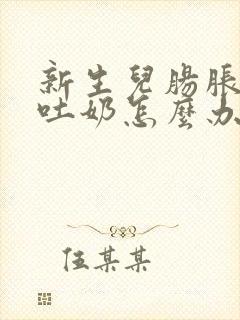 新生兒腸脹
吐奶怎麼办
伍某某